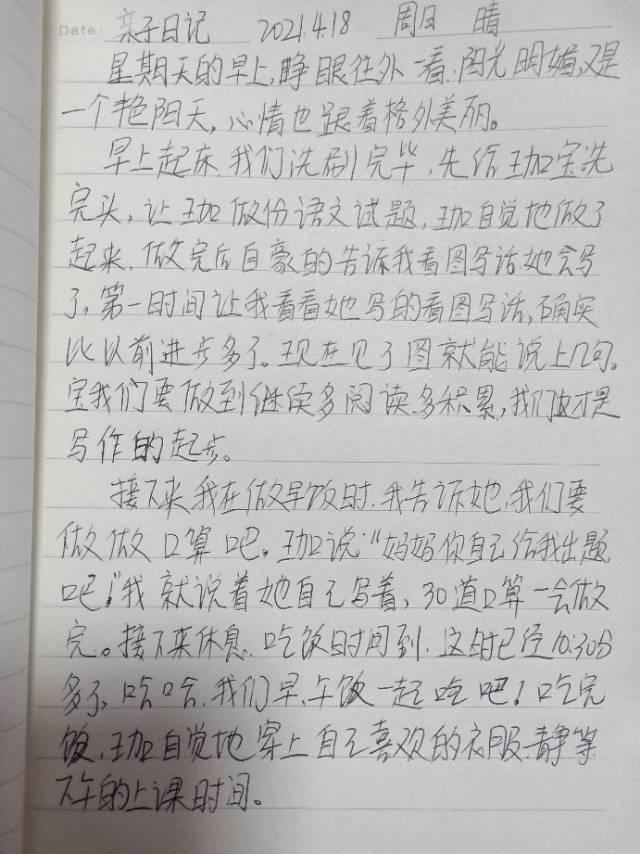 Date: 亲子日记 2021.4.18 周日 晴
星期天的早上,睁眼往外一看,阳光明媚,又是
一个艳阳天,心情也跟着格外美丽。
早上起床,我们洗刷完毕,先给珈宝洗
完头,让珈做份语文试题,珈自觉地做了
起来,做完后自豪的告诉我看图写话她会写
了,第一时间让我看看她写的看图写话,确实
比以前进步多了。现在见了图就能说上几句。
宝我们要做到继续多阅读,多积累,我们这才是
写作的起步。
接下来,我在做早饭时,我告诉她,我们要
做做口算吧。珈说“妈妈你自己给我出题
吧!”我就说着她自己写着,30道口算一会做
完。接下来休息,吃饭时间到,这时已经10:30分
多了,哈哈,我们早、午饭一起吃吧!吃完
饭,珈自觉地穿上自己喜欢的衣服,静等
下午的上课时间。